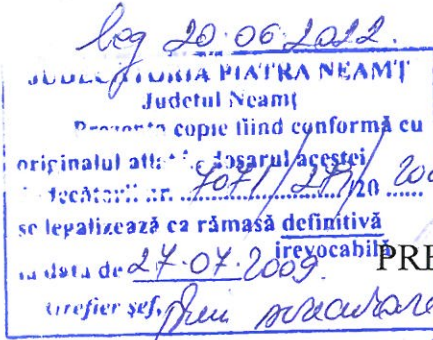 leg 20.06.2022.
JUDECĂTORIA PIATRA NEAMȚ
Județul Neamț
Prezenta copie fiind conformă cu
originalul aflat în dosarul acestei
judecătorii nr. 7071/279/20 200
se legalizează ca rămasă definitivă
irevocabilă
la data de 27.07.2009.
PRE
Grefier șef,